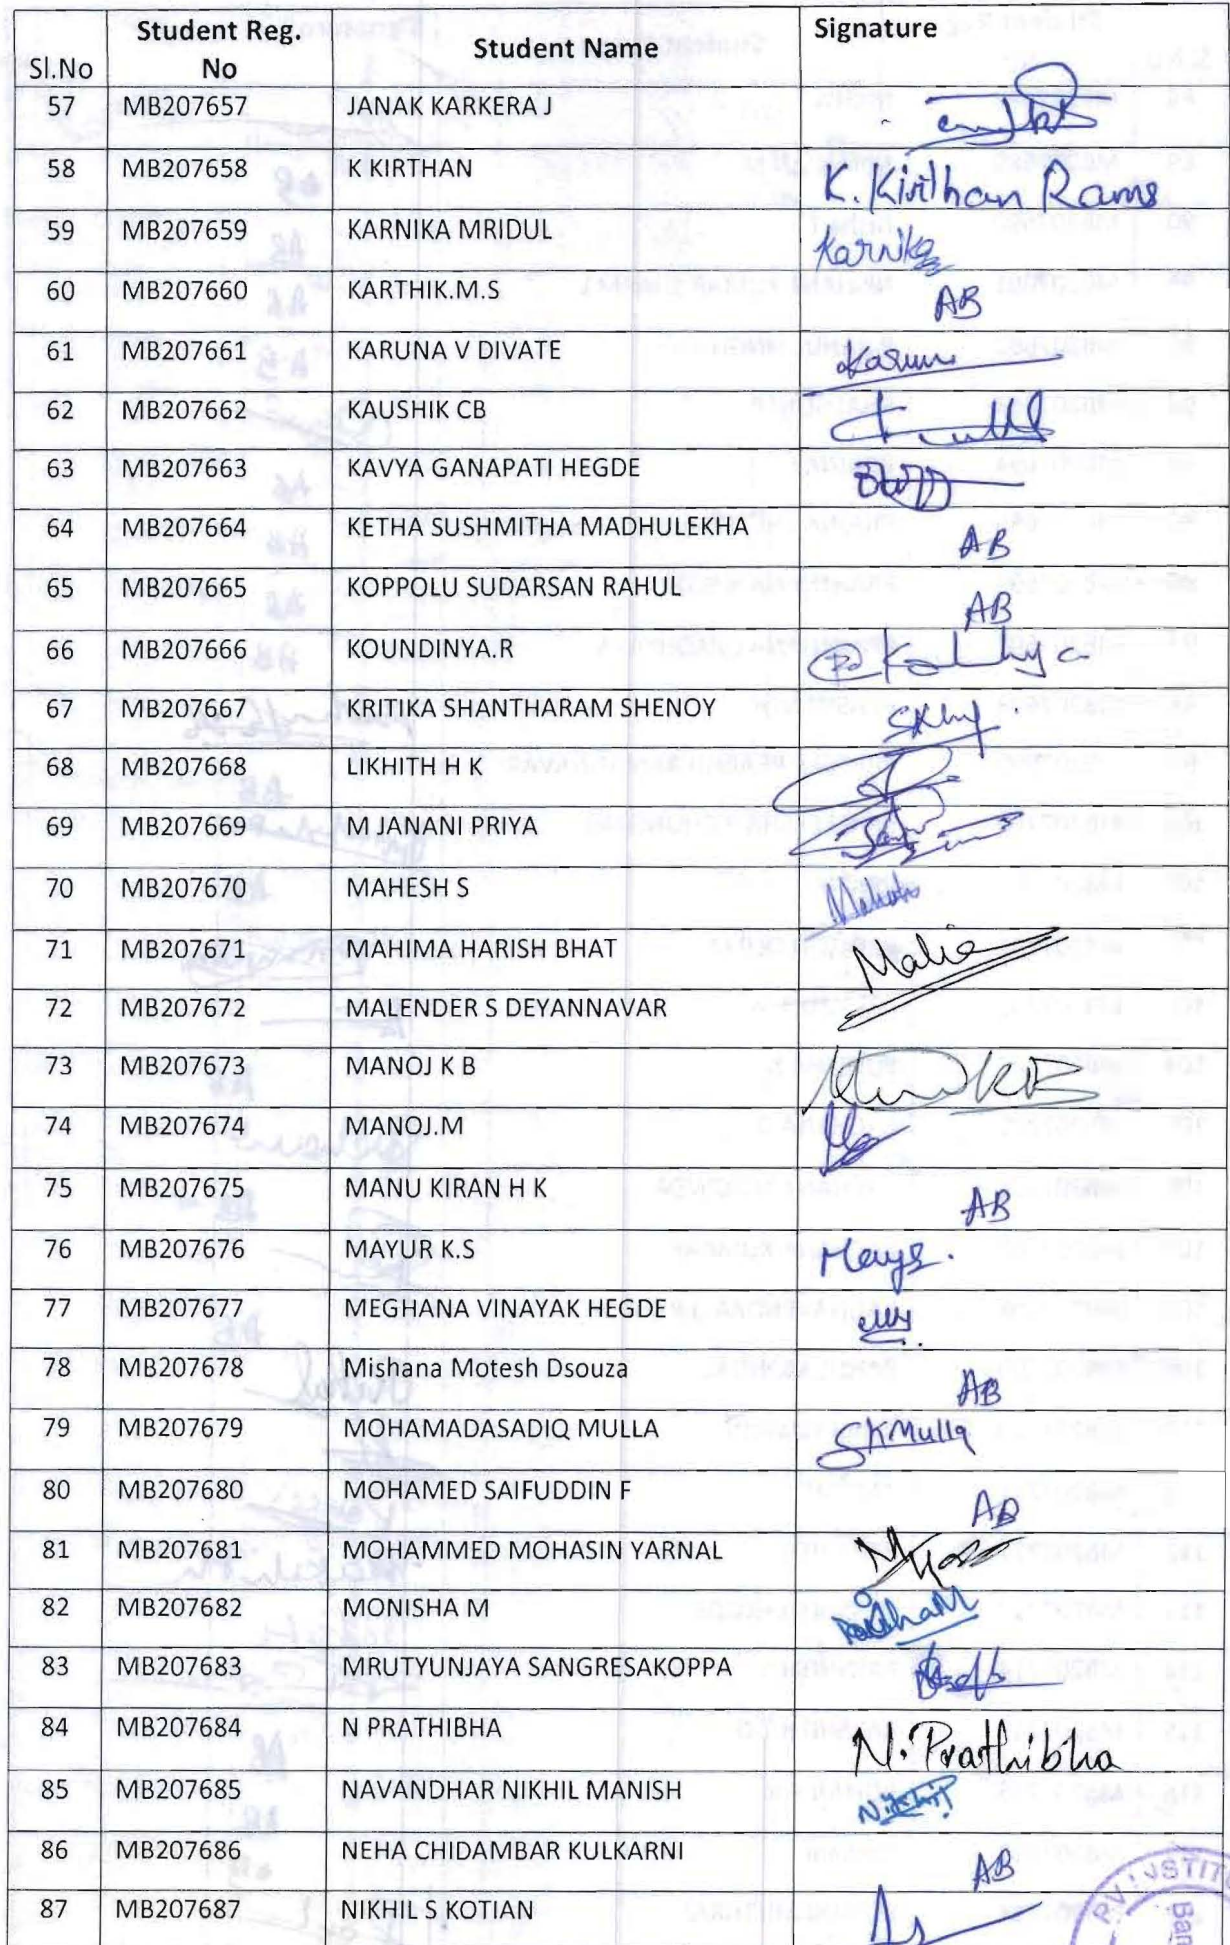 Sl.No Student Reg. No Student Name Signature
57 MB207657 JANAK KARKERA J
58 MB207658 K KIRTHAN K. Kirthan Rams
59 MB207659 KARNIKA MRIDUL Karnika
60 MB207660 KARTHIK.M.S AB
61 MB207661 KARUNA V DIVATE Karuna
62 MB207662 KAUSHIK CB
63 MB207663 KAVYA GANAPATI HEGDE
64 MB207664 KETHA SUSHMITHA MADHULEKHA AB
65 MB207665 KOPPOLU SUDARSAN RAHUL AB
66 MB207666 KOUNDINYA.R
67 MB207667 KRITIKA SHANTHARAM SHENOY
68 MB207668 LIKHITH H K
69 MB207669 M JANANI PRIYA
70 MB207670 MAHESH S
71 MB207671 MAHIMA HARISH BHAT
72 MB207672 MALENDER S DEYANNAVAR
73 MB207673 MANOJ K B
74 MB207674 MANOJ.M
75 MB207675 MANU KIRAN H K AB
76 MB207676 MAYUR K.S
77 MB207677 MEGHANA VINAYAK HEGDE
78 MB207678 Mishana Motesh Dsouza AB
79 MB207679 MOHAMADASADIQ MULLA SKMulla
80 MB207680 MOHAMED SAIFUDDIN F AB
81 MB207681 MOHAMMED MOHASIN YARNAL
82 MB207682 MONISHA M
83 MB207683 MRUTYUNJAYA SANGRESAKOPPA
84 MB207684 N PRATHIBHA N. Prathibha
85 MB207685 NAVANDHAR NIKHIL MANISH Nikhil
86 MB207686 NEHA CHIDAMBAR KULKARNI AB
87 MB207687 NIKHIL S KOTIAN